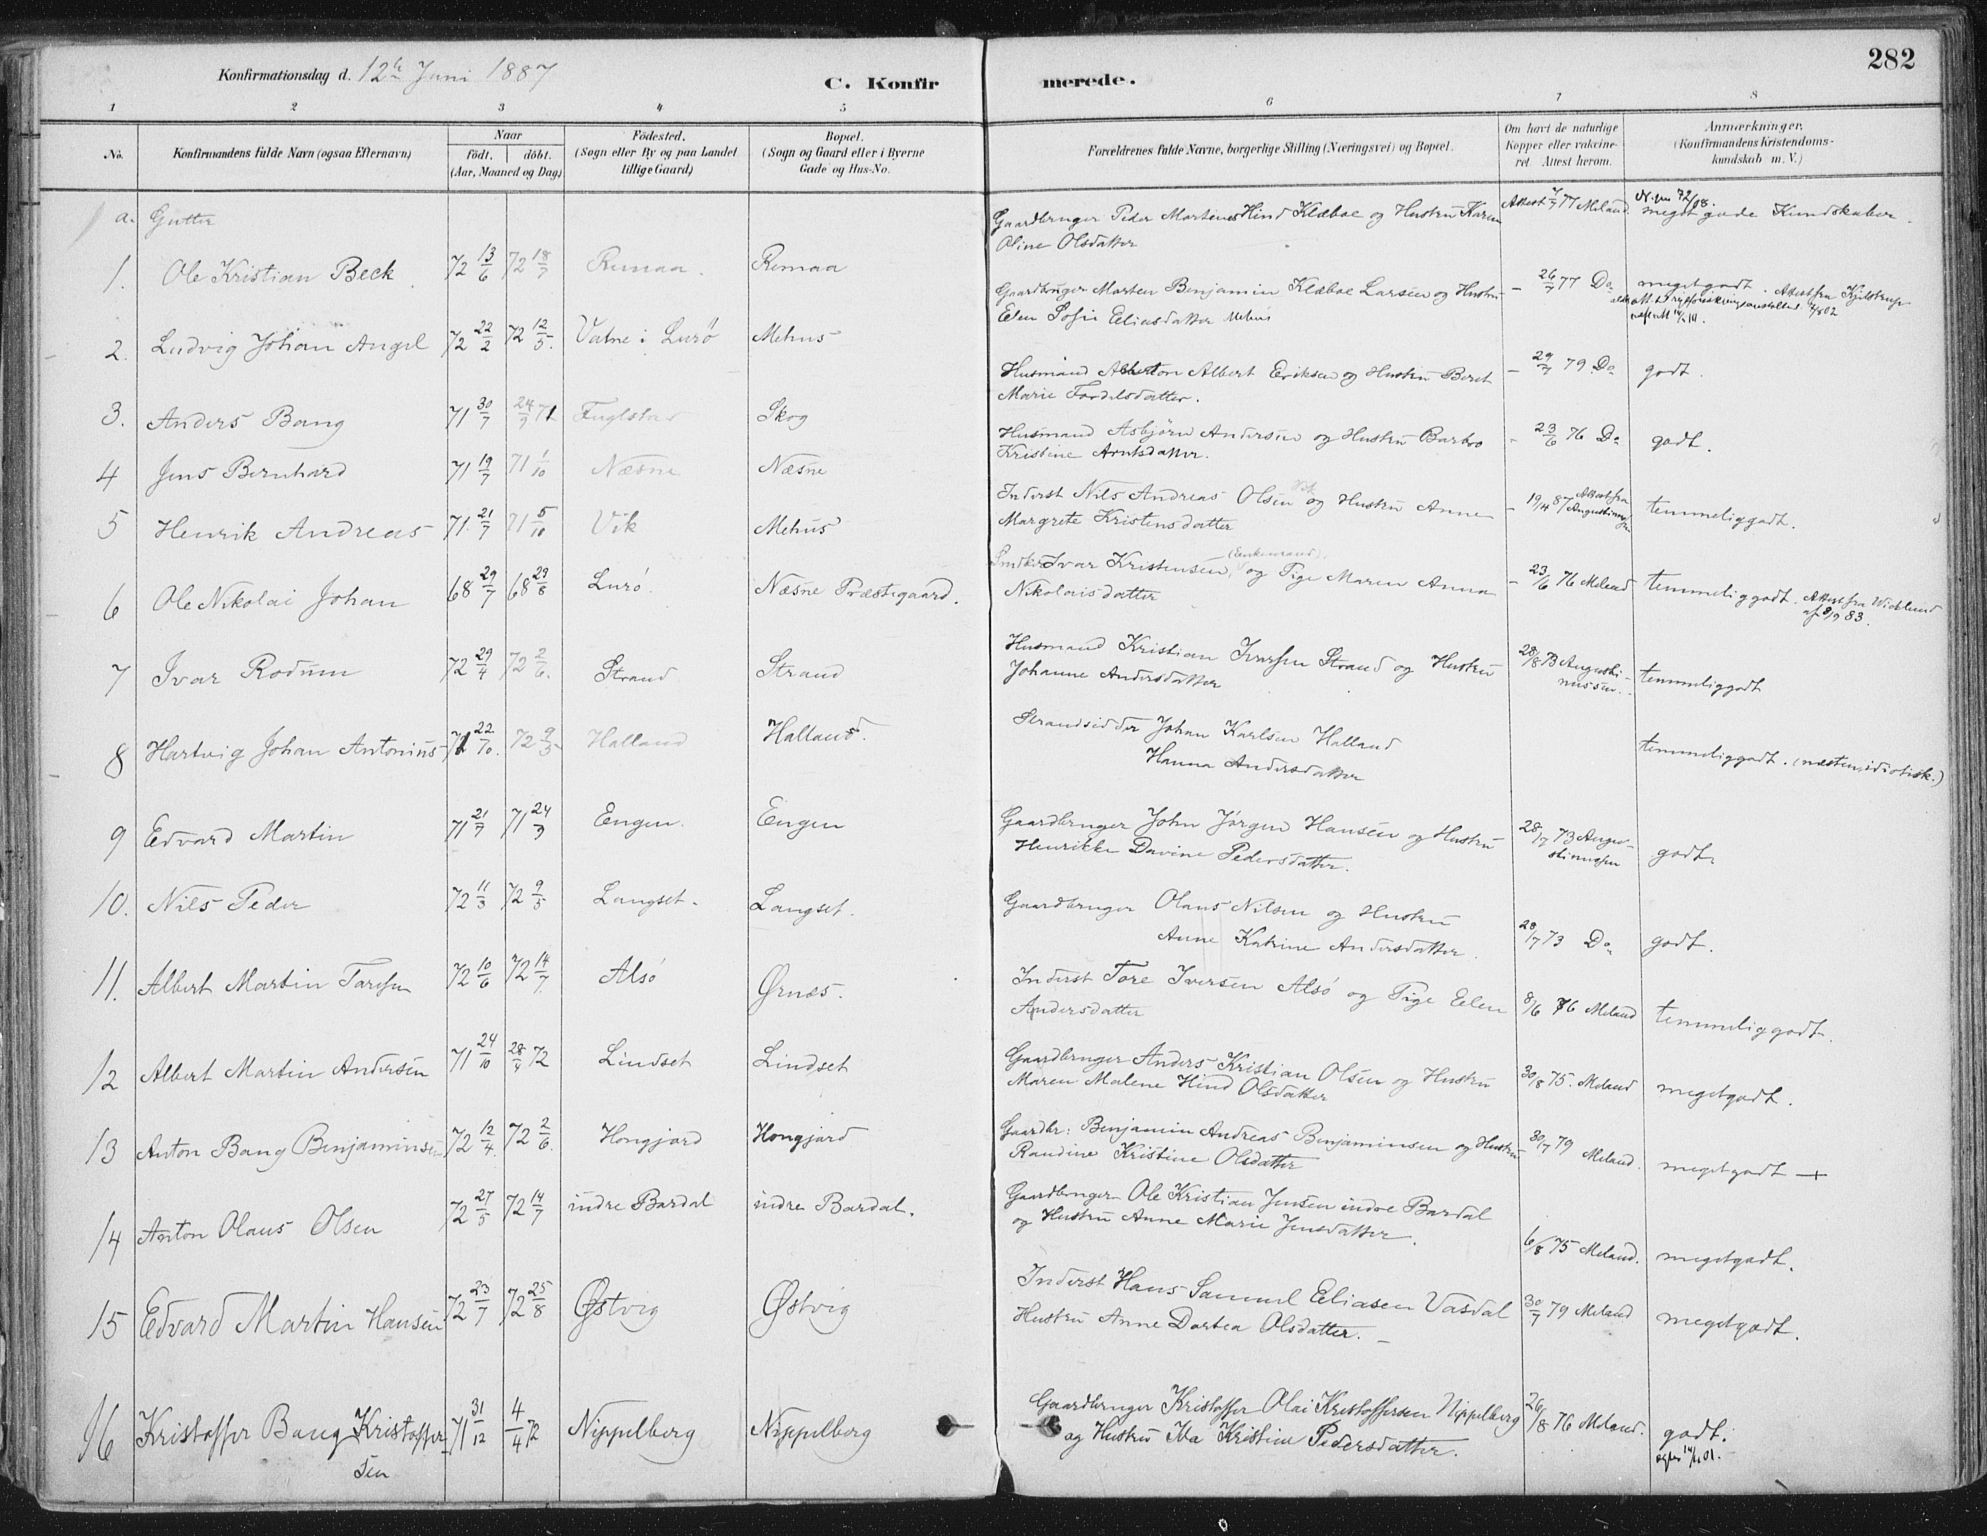 282
Konfirmationsdag d. 12te Juni 1887
C. Konfirmerede.
1 2 3 4 5 6 7 8
No.
Konfirmandens fulde Navn (ogsaa Efternavn)
Naar
födt. | döbt.
(Aar, Maaned og Dag)
Födested.
(Sogn eller By og paa Landet
tillige Gaard)
Bopæl.
(Sogn og Gaard eller i Byerne
Gade og Hus-No.
Forældrenes fulde Navne, borgerlige Stilling (Næringsvei) og Bopæl.
Om havt de naturlige
Kopper eller vakcine-
ret. Attest herom.
Anmærkninger.
(Konfirmandens Kristendoms-
kundskab m. V.)
a. Gutter
1. Ole Kristian Beck 72 13/6 72 18/7 Remaa. Remaa
Gaardbruger Peder Martenes Hind Klæboe og Hustru Karen
Oline Olsdatter
Attest 7/7 77 Meland.
meget gode Kundskaber.
2. Ludvig Johan Angel 72 22/2 72 12/5. Vatne i Lurø Mehus
Gaardbruger Morten Benjamin Klæboe Larsen og Hustru
Elen Sofie Eliasdatter Mehus
– 26/7 77 Do
megetgodt. Attest fra Kjelstrup
3. Anders Bang 71 30/7 24/9 71 Fuglstad Skog
Husmand Albert Eriksen og Hustru Beret
Marie Tordelsdatter.
– 29/7 79 Do
godt.
4 Jens Bernhard 71 19/7 71 1/10 Næsne Næsne
Husmand Asbjørn Andersen og Hustru Barbro
Kristine Arntsdatter.
– 23/6 76 Do
godt.
5 Henrik Andreas 71. 21/7 71 5/10 Vik Mehus
Inderst Nils Andreas Olsen og Hustru Anne
Margrete Kristensdatter
– 19/4 87 Attest fra
temmeliggodt.
6 Ole Nikolai Johan 68 29/7 68 29/8 Lurö. Næsne Præstegaard.
Ivar Kristensen, (Enkemand) og Pige Maren Anna
Nikolaisdatter
– 23/6 76 Meland
temmeliggodt. Attest fra Wicklund
af 8/9 83.
7 Ivar Rodum 72 29/4 72 2/6. Strand Strand
Husmand Kristian Iversen Strand og Hustru
Johanne Andersdatter
28/8 73 Augusti-
nussen.
temmeliggodt
8 Hartvig Johan Antonius 71 22/10. 72 9/5 Halland Halland.
Strandsidder Johan Karlsen Halland
Hanna Andersdatter
temmeliggodt. (næsten idiotisk.)
9 Edvard Martin 71 21/7 71 24/9 Engen. Engen
Gaardbruger John Jörgen Hansen og Hustru
Henrikke Davine Pedersdatter.
28/7 73 Augu-
stinussen
godt.
10. Nils Peder 72 11/3 72 9/5 Langset. Langset.
Gaardbruger Olaus Nilsen og Hustru
Anne Katrine Andersdatter.
28/7 73 Do
godt.
11. Albert Martin Toresen 72 10/6 72 14/7 Alsö Ørnæs.
Inderst Tore Iversen Alsö og Pige Elen
Andersdatter
8/6 76 Meland
temmeliggodt.
12 Albert Martin Andersen 71 24/10 28/4 72 Lindset Lindset
Gaardbruger Anders Kristian Olsen og Hustru
Maren Malene Hind Olsdatter
30/8 75. Meland
megetgodt.
13 Anton Bang Benjaminsen 72 12/4 72 2/6. Hongjord Hongjord
Gaardbr: Benjamin Andreas Benjaminsen og Hustru
Randine Kristine Olsdatter
30/7 79 Meland.
megetgodt +
14 Anton Olaus Olsen 72 27/5 72 14/7 indre Bardal indre Bardal.
Gaardbruger Ole Kristian Jensen indre Bardal
og Hustru Anne Marie Jensdatter.
6/8 75 Meland.
megetgodt.
15 Edvard Martin Hansen 72 23/7 72 25/8 Østvig Østvig
Inderst Hans Samuel Eliasen Vasdal
Hustru Anne Dortea Olsdatter. –
30/7 79 Meland
megetgodt.
16 Kristoffer Bang Kristoffer-
sen 71 31/12 4/4 72 Nippelberg Nippelberg
Gaardbruger Kristoffer Olai Kristoffersen Nippelberg
og Hustru Ida Kristine Pedersdatter.
26/8 76 Meland.
godt.